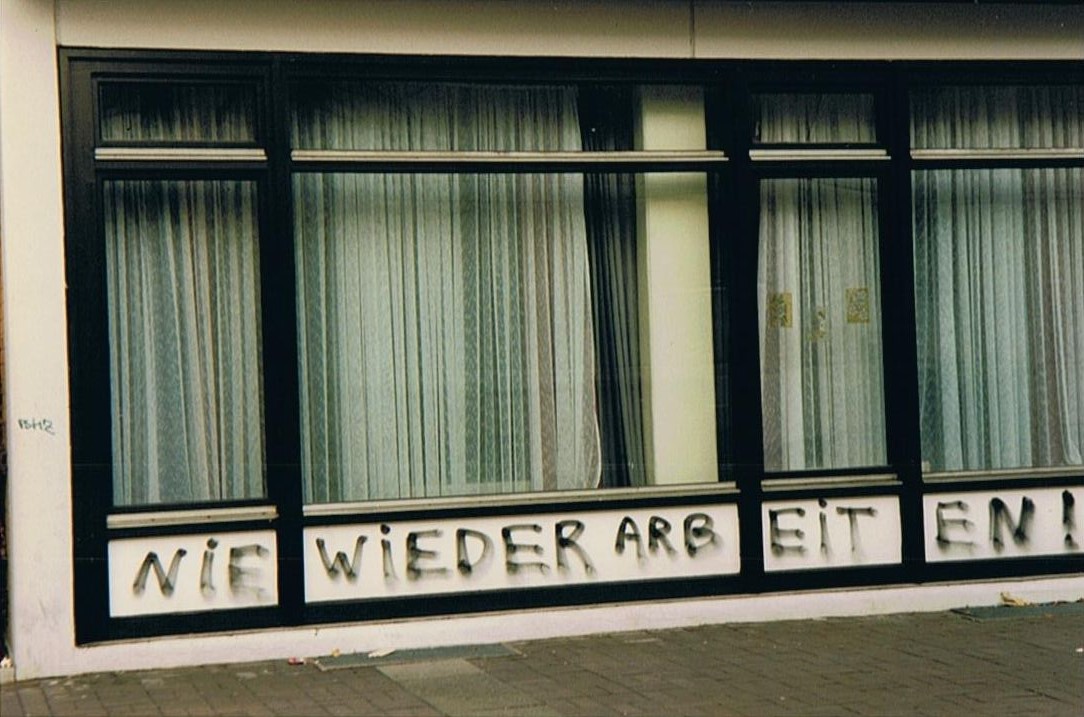 NiE WiEDER ARB EiT EN!